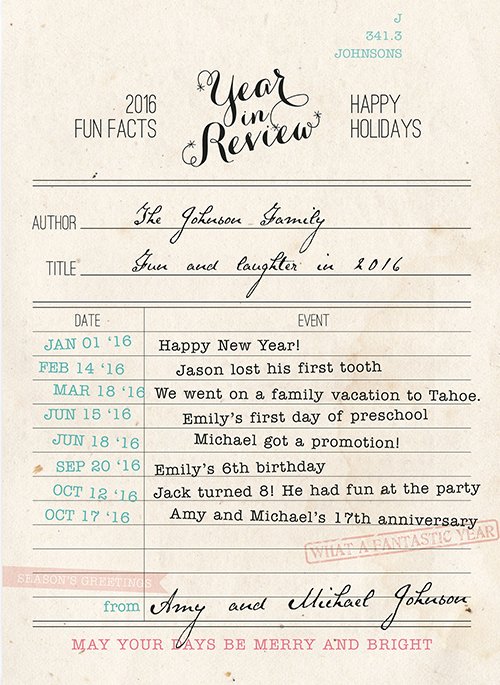 J
341.3
JOHNSONS
2016
FUN FACTS
Year
in
Review
HAPPY
HOLIDAYS
AUTHOR The Johnson Family
TITLE Fun and laughter in 2016
DATE EVENT
JAN 01 '16 Happy New Year!
FEB 14 '16 Jason lost his first tooth
MAR 18 '16 We went on a family vacation to Tahoe.
JUN 15 '16 Emily's first day of preschool
JUN 18 '16 Michael got a promotion!
SEP 20 '16 Emily's 6th birthday
OCT 12 '16 Jack turned 8! He had fun at the party
OCT 17 '16 Amy and Michael's 17th anniversary
WHAT A FANTASTIC YEAR
SEASON'S GREETINGS
from Amy and Michael Johnson
MAY YOUR DAYS BE MERRY AND BRIGHT